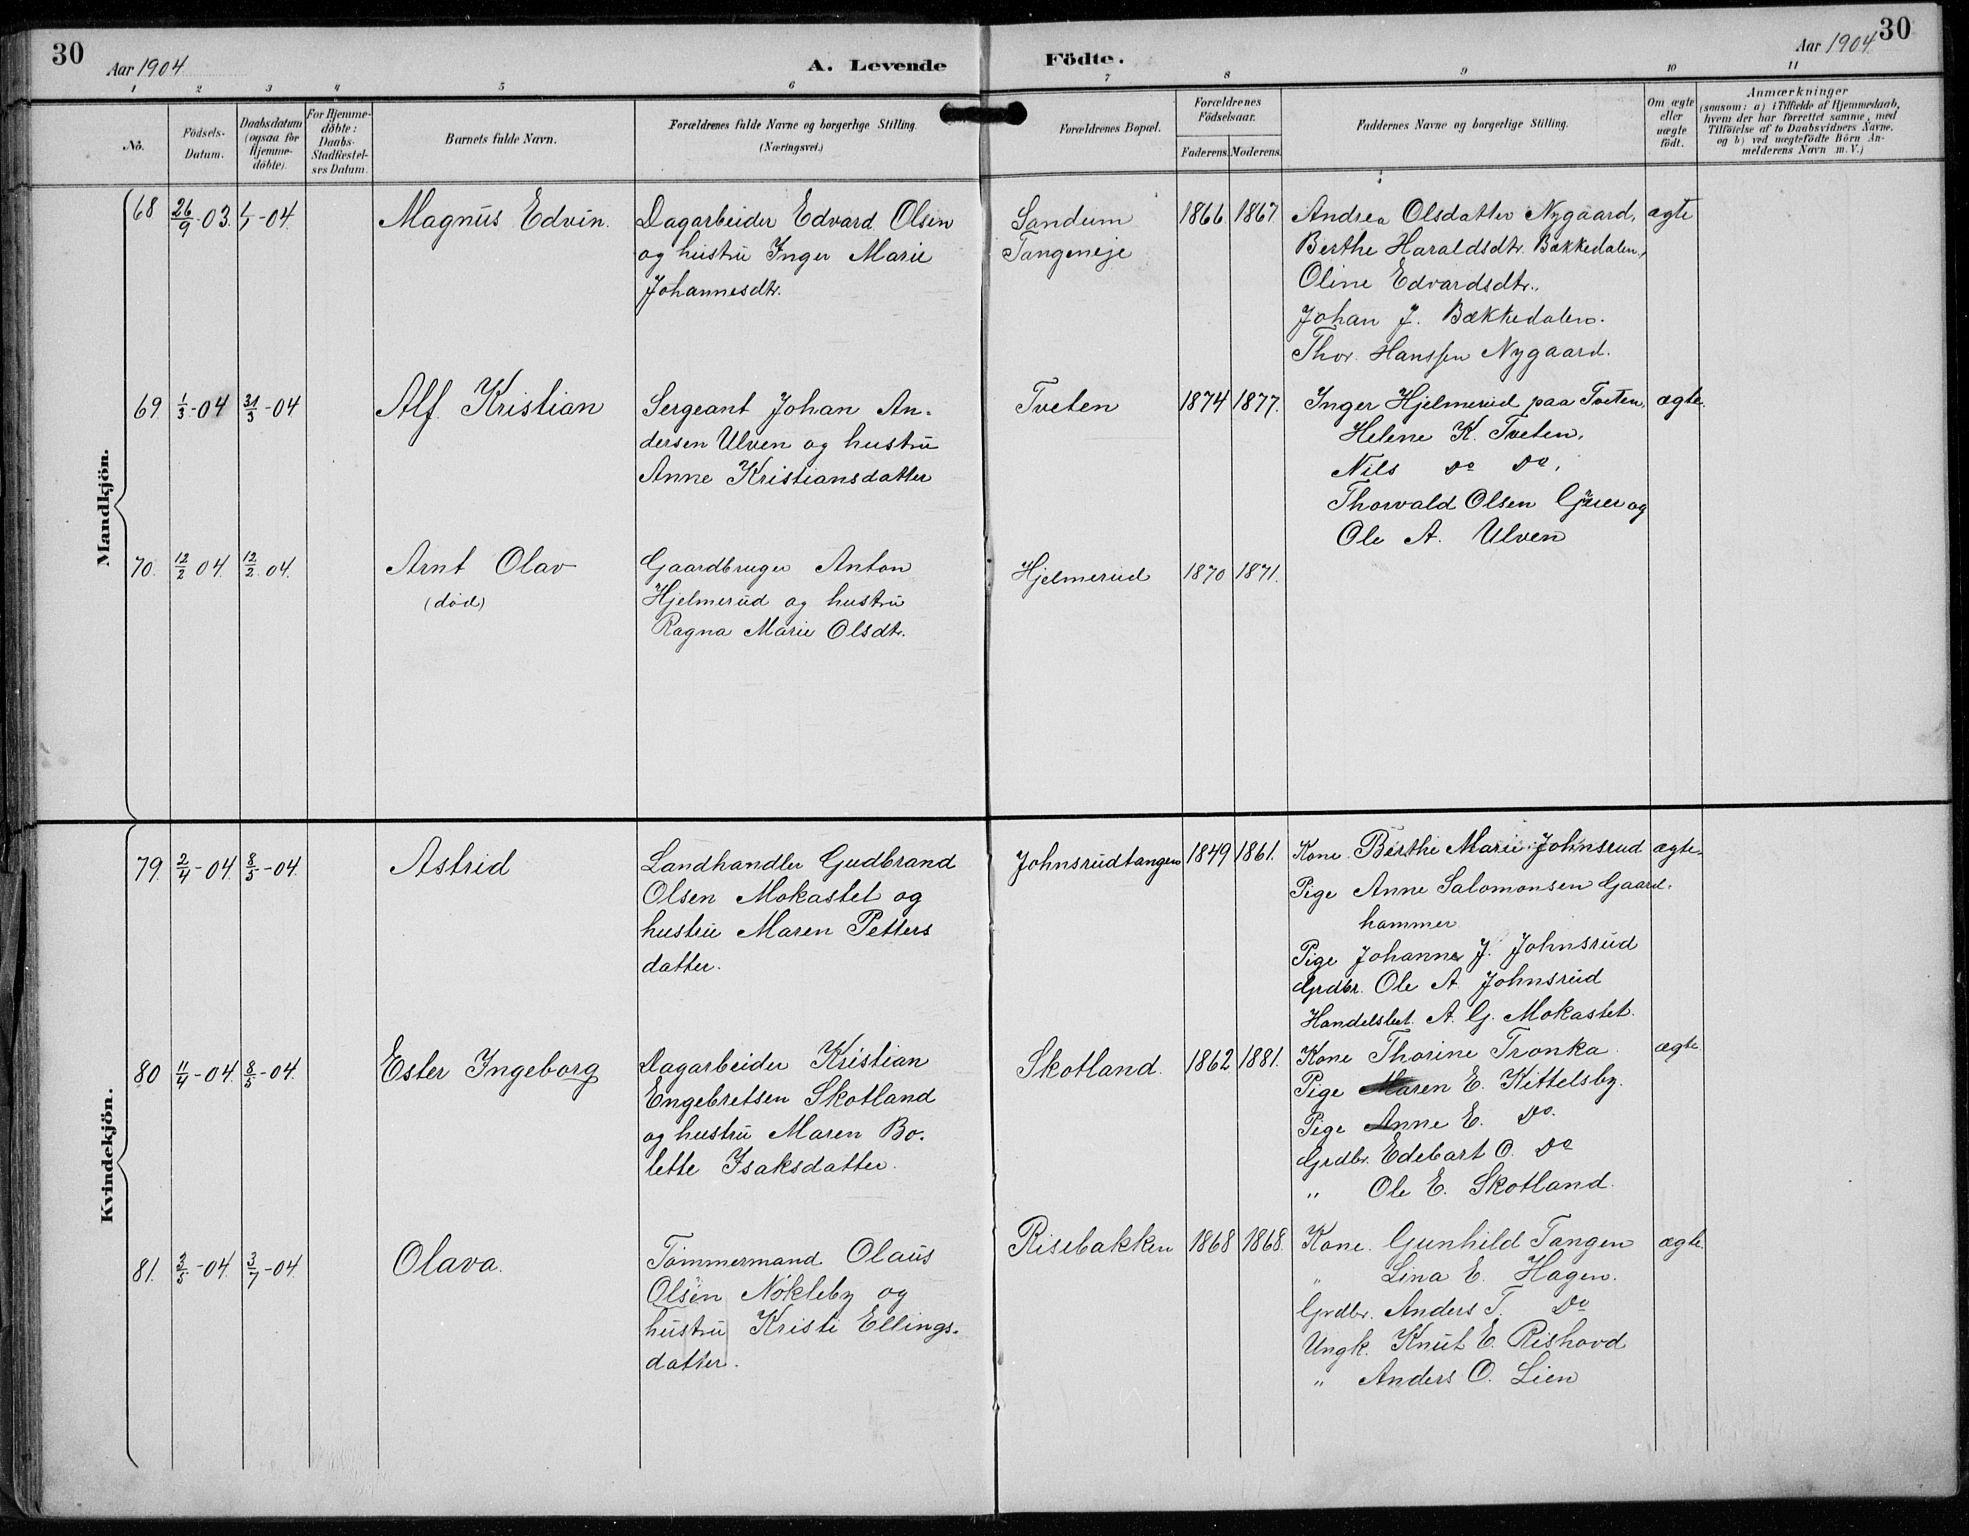 30
Aar 1904
A. Levende
Födte.
Aar 1904
30
1 2 3 4 5 6 7 8 9 10 11
No.
Födsels-
Datum.
Daabsdatum
(ogsaa for
Hjemme-
döbte).
For Hjemme-
döbte:
Daabs-
Stadfæstel-
ses Datum.
Barnets fulde Navn.
Forældrenes fulde Navne og borgerlige Stilling.
(Næringsvei.)
Forældrenes Bopæl.
Forældrenes
Födselsaar.
Faderens. Moderens.
Faddernes Navne og borgerlige Stilling.
Om ægte
eller
uægte
födt.
Anmærkninger
(saasom: a) i Tilfælde af Hjemmedaab,
hvem der har forrettet samme, med
Tilföielse af to Daabsvidners Navne,
og b) ved uægtefödte Börn An-
melderens Navn m. V.)
Mandkjön.
68 26/9-03. -04.
Magnus Edvin.
Dagarbeider Edvard Olsen
og hustru Inger Marie
Johannesdtr.
Sandum
Tangeneje
1866 1867
Andrea Olsdatter Nygaard,
Berthe Haraldsdtr. Bækkedalen,
Oline Edvardsdtr.,
Johan J. Bækkedalen.
Thor. Hanssen Nygaard.
ægte
69. 1/3-04 31/3-04
Alf. Kristian
Sergeant Johan An-
dersen Ulven og hustru
Anne Kristiansdatter
Tveten
1874 1877.
Inger Hjelmerud paa Tveten,
Helene K. Tveten,
Nils do do,
Thorvald Olsen og
Ole A. Ulven
ægte.
70. 12/2 04. 12/2 04.
Arnt Olav
(död)
Gaardbruger Anton
Hjelmerud og hustru
Ragna Marie Olsdtr.
Hjelmerud
1870 1871.
Kvindekjön.
79. 2/4-04. 8/5-04.
Astrid
Landhandler Gudbrand
Olsen Mokastet og
hustru Maren Petters
datter.
Johnsrudtangen
1849 1861.
Kone Berthe Marie Johnsrud
Pige Anne Salomonsen Gaard-
hammer
Pige Johanne J. Johnsrud
Grdbr. Ole A. Johnsrud
Handelsbet. A. G. Mokastet.
ægte.
80 11/4-04. 8/5-04.
Ester Ingeborg
Dagarbeider Kristian
Engebretsen Skotland
og hustru Maren Bo-
lette Isaksdatter.
Skotland.
1862 1881.
Kone Thorine Tronka.
Pige Maren E. Kittelsby.
Pige Anne E. do.
Grdbr. Edebart O. do
" Ole E. Skotland.
ægte.
81. 2/5-04. 3/7-04.
Olava.
Tömmermand Olaus
Olsen Nökleby og
hustru Kristi Ellings-
datter.
Risebakken
1868 1868.
Kone. Gunhild Tangen
" Lina E. Hagen.
Grdbr. Anders T. do
Ungk. Knut E. Rishovd
" Anders O. Lien
ægte.